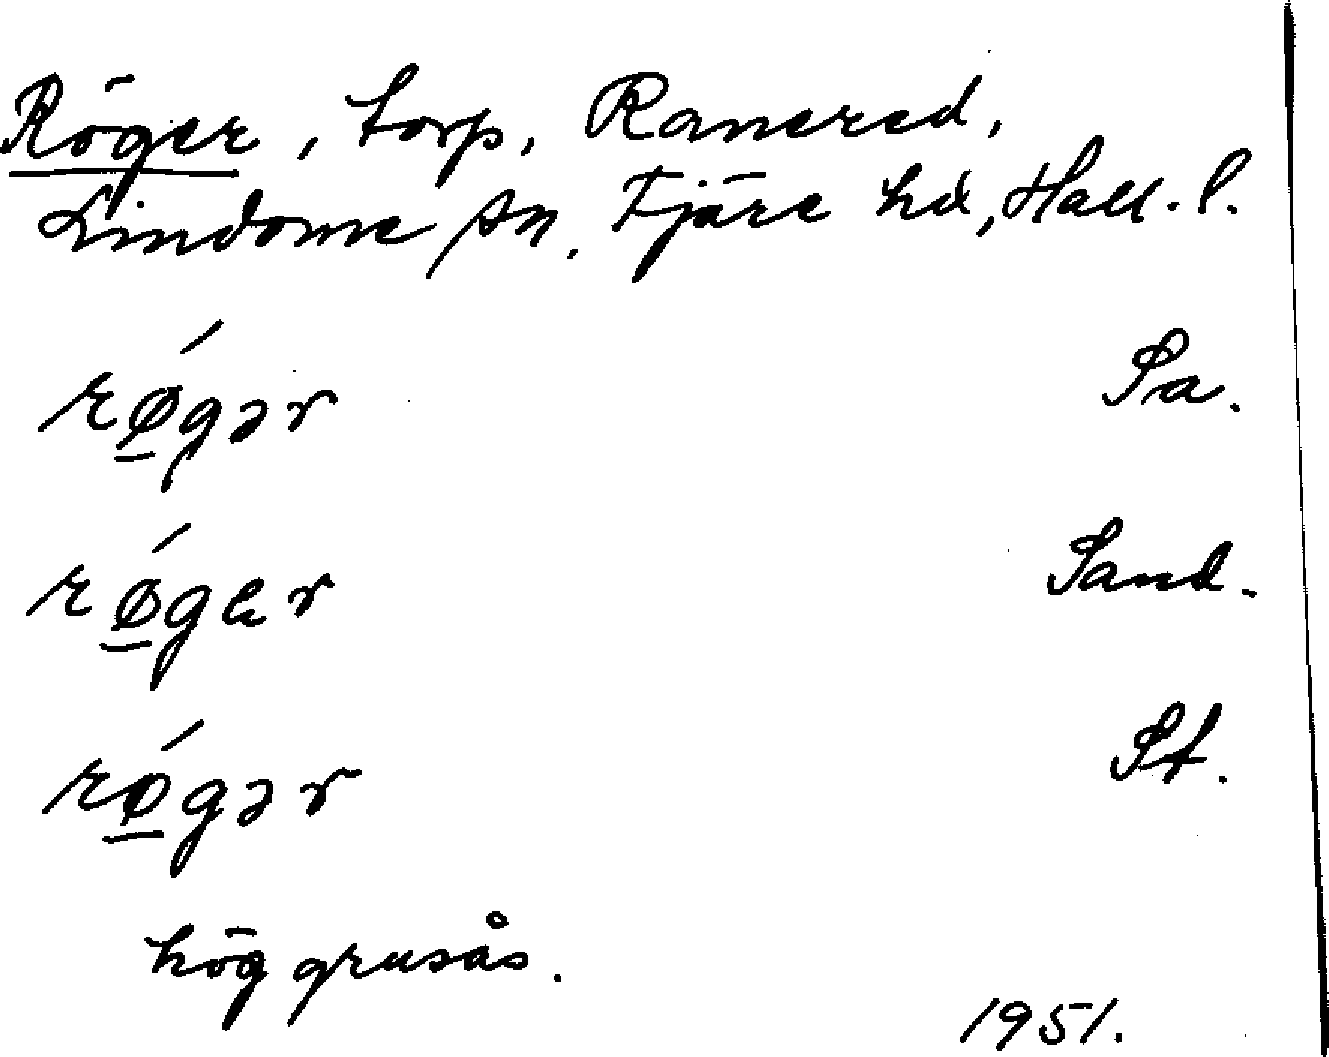 Röger, torp, Ranered,
Lindome sn. Fjäre hd, Hall. l.
rǿ̲gər Sa.
rǿ̲ger Sand.
rǿ̲gər St.
hög grusås.
1951.